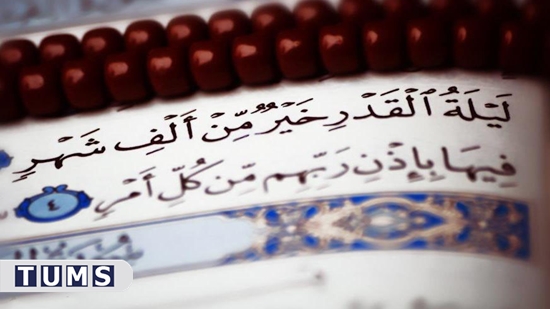 لَيْلَةُ ٱلْقَدْرِ خَيْرٌ مِّنْ أَلْفِ شَهْرٍ
فِيهَا بِإِذْنِ رَبِّهِم مِّن كُلِّ أَمْرٍ ٤
TUMS